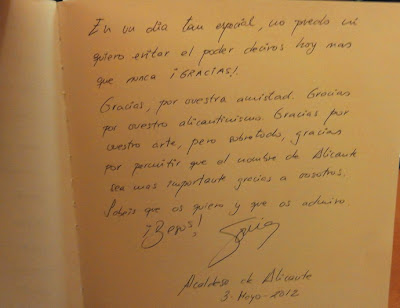 En un día tan especial, no puedo ni
quiero evitar el poder deciros hoy mas
que nunca ¡GRACIAS!.
Gracias, por vuestra amistad. Gracias
por vuestro alicantinismo. Gracias por
vuestro arte, pero sobretodo, gracias
por permitir que el nombre de Alicante
sea mas importante gracias a vosotros.
Sabéis que os quiero y que os admiro
¡Besos!
Sonia
Alcaldesa de Alicante
3-Mayo-2012